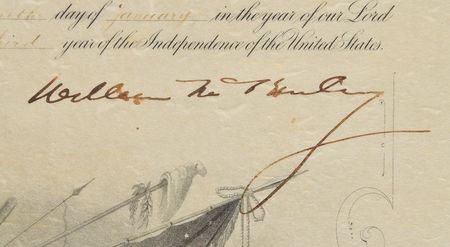 day of january in the year of our Lord
third year of the Independence of the United States.
William McKinley